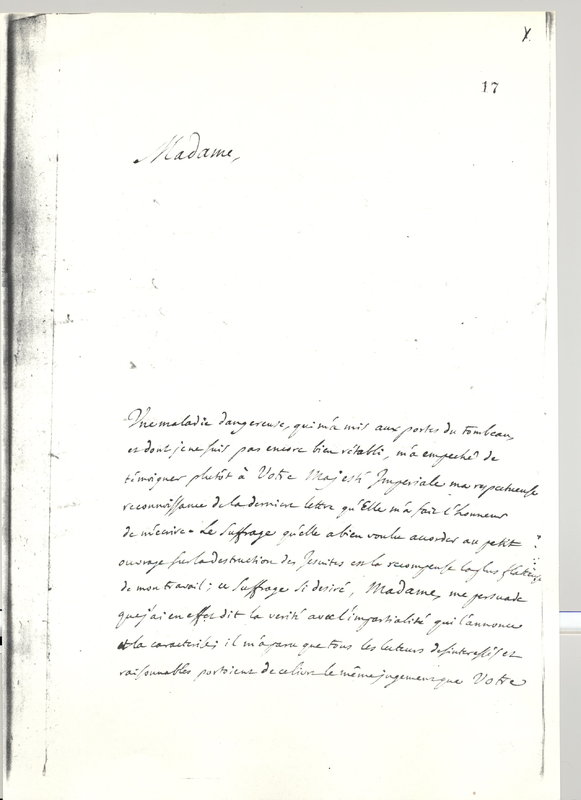 17
Madame,
Une maladie dangereuse, qui m'a mis aux portes du tombeau,
et dont je ne suis pas encore bien rétabli, m'a empeché de
témoigner plutôt à Votre Majesté Imperiale ma respectueuse
reconnoissance de la derniere lettre qu'Elle m'a fait l'honneur
de m'ecrire. Le suffrage qu'elle a bien voulu accorder au petit
ouvrage sur la destruction des Jesuites est la recompense la plus flatteuse
de mon travail; ce suffrage si desiré, Madame, me persuade
que j'ai en effet dit la verité avec l'impartialité qui l'annonce
et la caracterise; il m'a paru que tous les lecteurs desinteressés et
raisonnables portoient de ce livre le même jugement que Votre